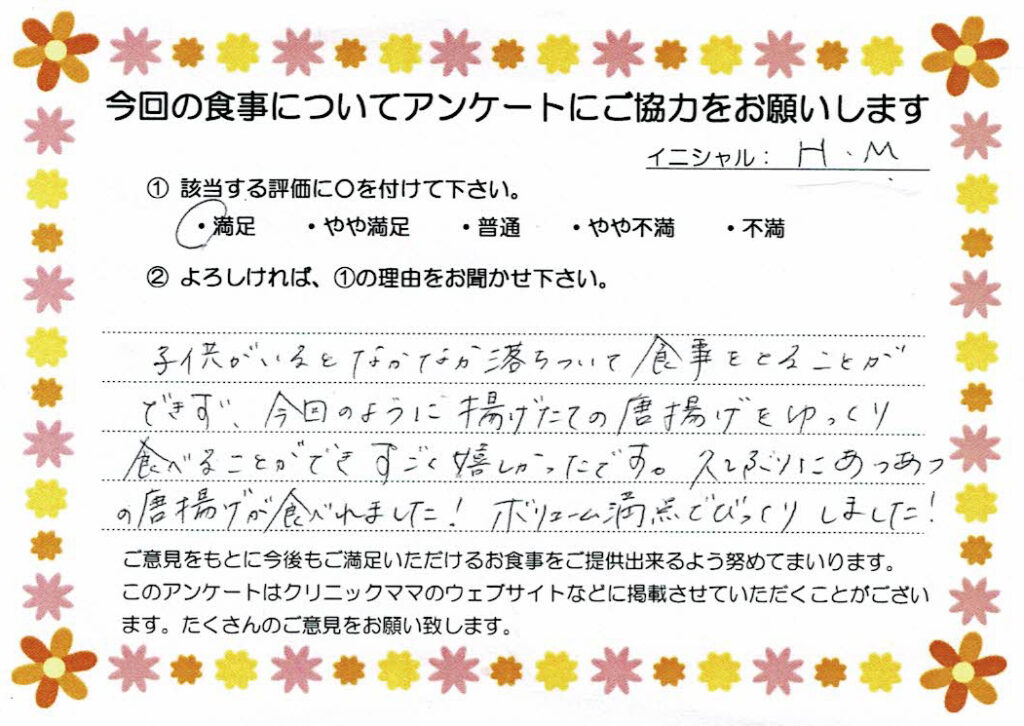 今回の食事についてアンケートにご協力をお願いします
イニシャル： H.M
① 該当する評価に〇を付けて下さい。
・満足 ・やや満足 ・普通 ・やや不満 ・不満
② よろしければ、①の理由をお聞かせ下さい。
子供がいるとなかなか落ちついて食事をとることが
できず、今回のように揚げたての唐揚げをゆっくり
食べることができすごく嬉しかったです。久しぶりにあつあつ
の唐揚げが食べれました！ ボリューム満点でびっくりしました！
ご意見をもとに今後もご満足いただけるお食事をご提供出来るよう努めてまいります。
このアンケートはクリニックママのウェブサイトなどに掲載させていただくことがござい
ます。たくさんのご意見をお願い致します。